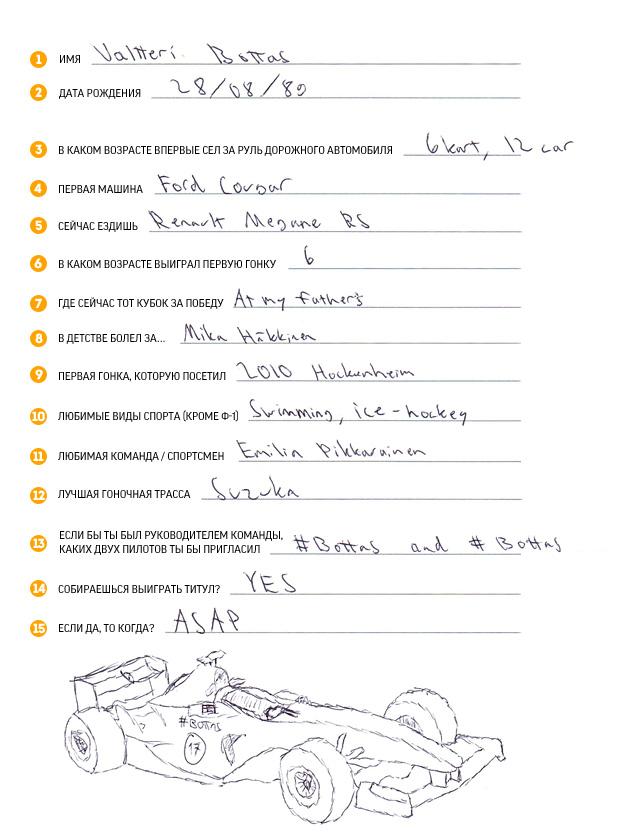 1 ИМЯ Valtteri Bottas
2 ДАТА РОЖДЕНИЯ 28/08/89
3 В КАКОМ ВОЗРАСТЕ ВПЕРВЫЕ СЕЛ ЗА РУЛЬ ДОРОЖНОГО АВТОМОБИЛЯ 6 kart, 12 car
4 ПЕРВАЯ МАШИНА Ford Cougar
5 СЕЙЧАС ЕЗДИШЬ Renault Megane RS
6 В КАКОМ ВОЗРАСТЕ ВЫИГРАЛ ПЕРВУЮ ГОНКУ 6
7 ГДЕ СЕЙЧАС ТОТ КУБОК ЗА ПОБЕДУ At my father's
8 В ДЕТСТВЕ БОЛЕЛ ЗА... Mika Häkkinen
9 ПЕРВАЯ ГОНКА, КОТОРУЮ ПОСЕТИЛ 2010 Hockenheim
10 ЛЮБИМЫЕ ВИДЫ СПОРТА (КРОМЕ Ф-1) Swimming, ice-hockey
11 ЛЮБИМАЯ КОМАНДА / СПОРТСМЕН Emilia Pikkarainen
12 ЛУЧШАЯ ГОНОЧНАЯ ТРАССА Suzuka
13 ЕСЛИ БЫ ТЫ БЫЛ РУКОВОДИТЕЛЕМ КОМАНДЫ,
КАКИХ ДВУХ ПИЛОТОВ ТЫ БЫ ПРИГЛАСИЛ #Bottas and #Bottas
14 СОБИРАЕШЬСЯ ВЫИГРАТЬ ТИТУЛ? YES
15 ЕСЛИ ДА, ТО КОГДА? ASAP
#BOTTAS
17